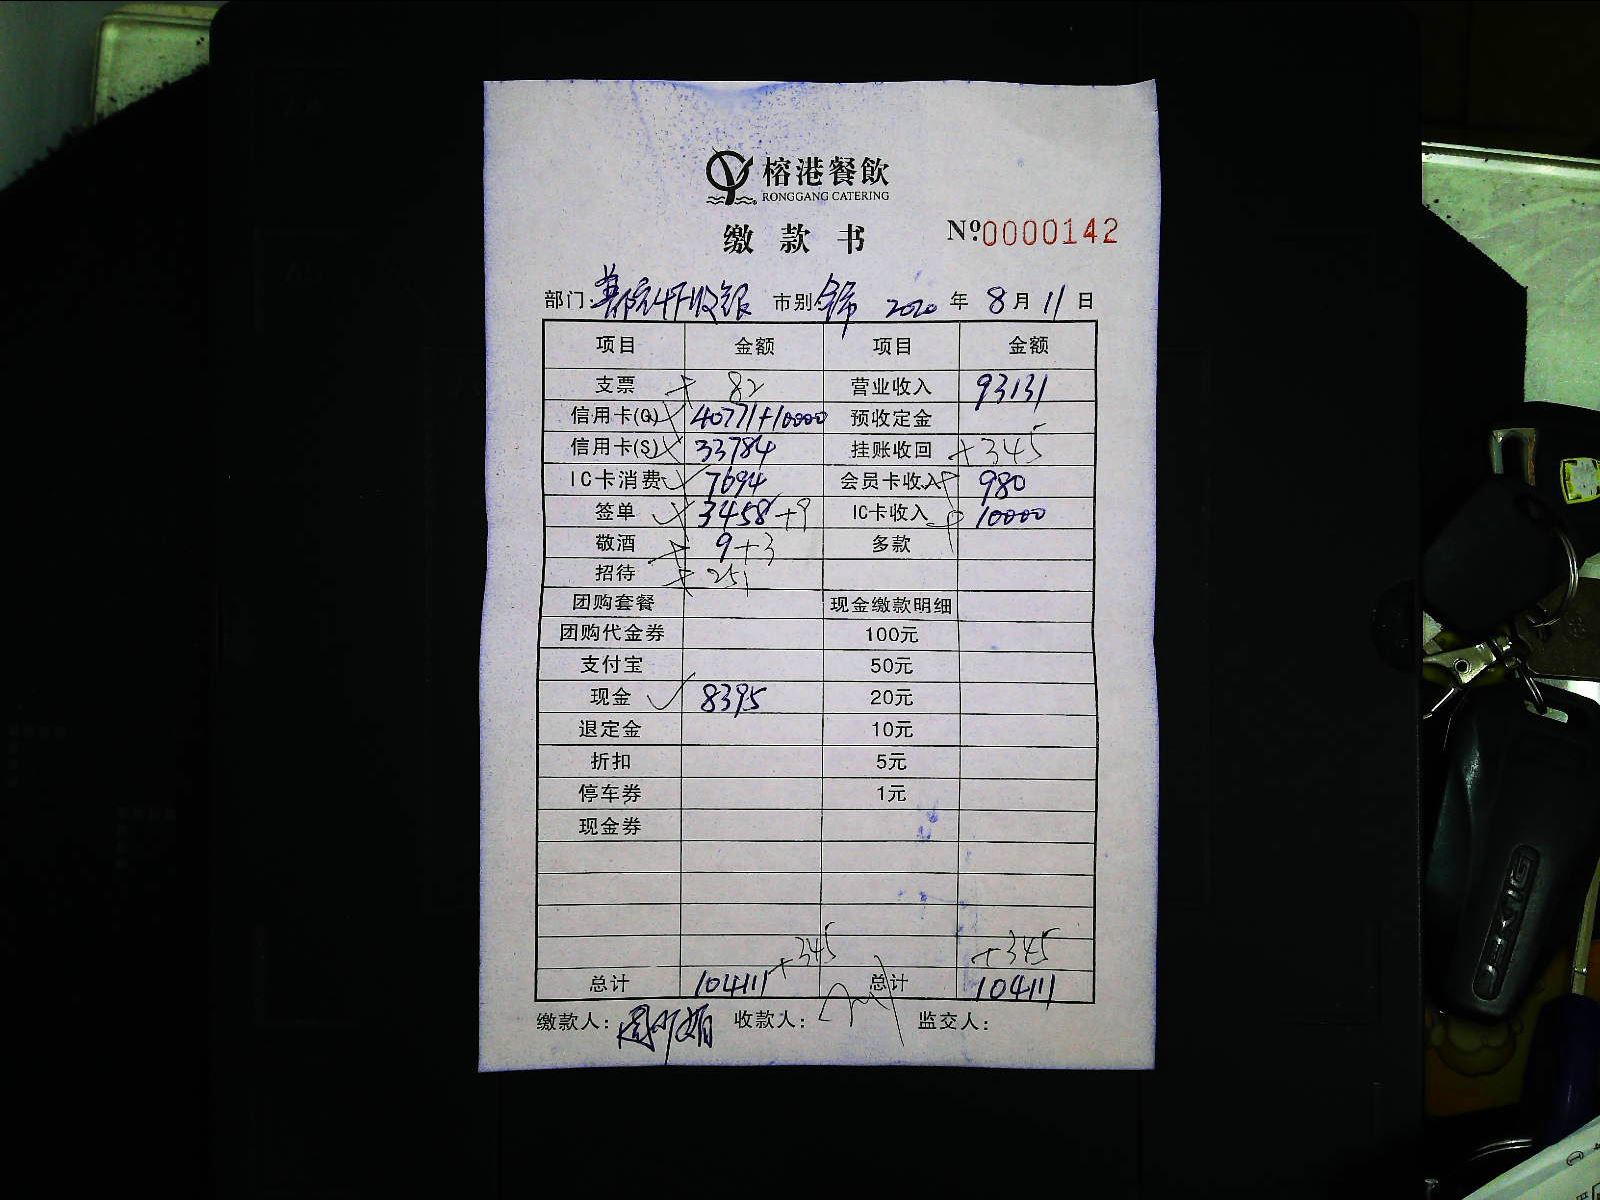 榕港餐飲
RONGGANG CATERING
缴款书 Nº0000142
部门: 收银 市别 2020 年 8 月 11 日
项目 金额 项目 金额
支票 + 82 营业收入 93131
信用卡(G) 40771+10000 预收定金
信用卡(S) 33784 挂账收回 +345
IC卡消费 7694 会员卡收入 980
签单 3458 +9 IC卡收入 10000
敬酒 9+3 多款
招待 + 251
团购套餐 现金缴款明细
团购代金券 100元
支付宝 50元
现金 8395 20元
退定金 10元
折扣 5元
停车券 1元
现金券
+345 +345
总计 104111 总计 104111
缴款人: 收款人: 监交人: